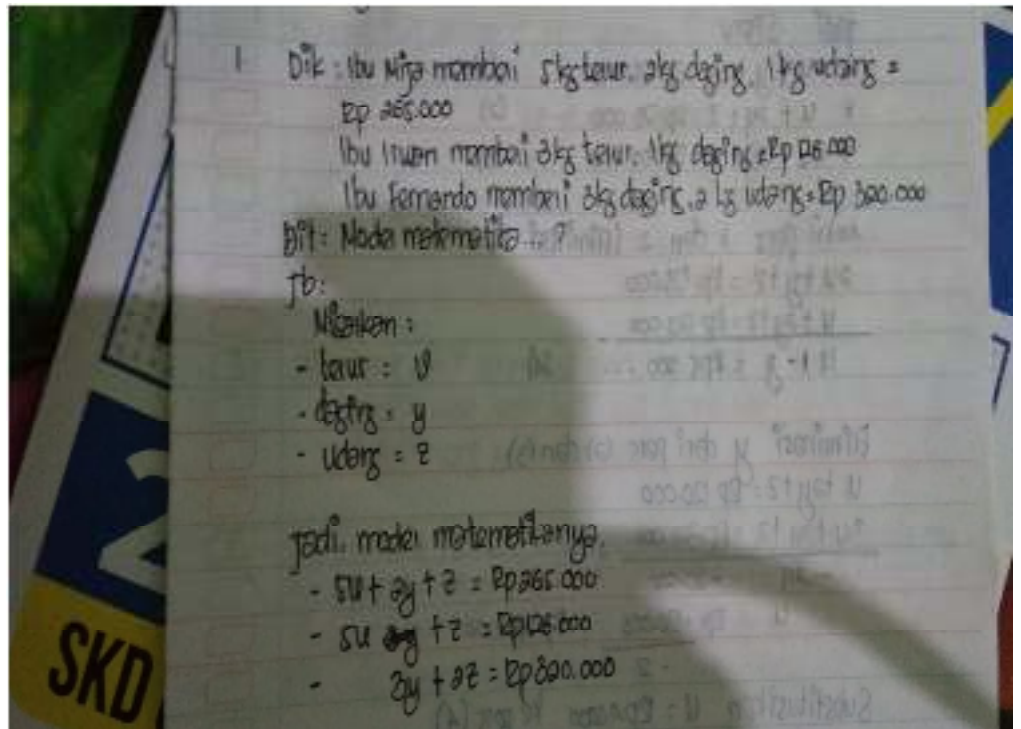 1 Dik : Ibu Mira membeli 5kg telur. 2kg daging. 1 kg udang =
Rp 265.000
Ibu Irwan membeli 3kg telur. 1kg daging = Rp 126.000
Ibu Fernando membeli 3kg daging. 2 kg udang = Rp 320.000
Dit : Model matematika ... ?
Jb :
Misalkan :
- telur = u
- daging = y
- udang = z
Jadi. model matematikanya.
- 5u + 2y + z = Rp265.000
- 5u + z = Rp126.000
- 3y + 2z = Rp320.000
2
SKD